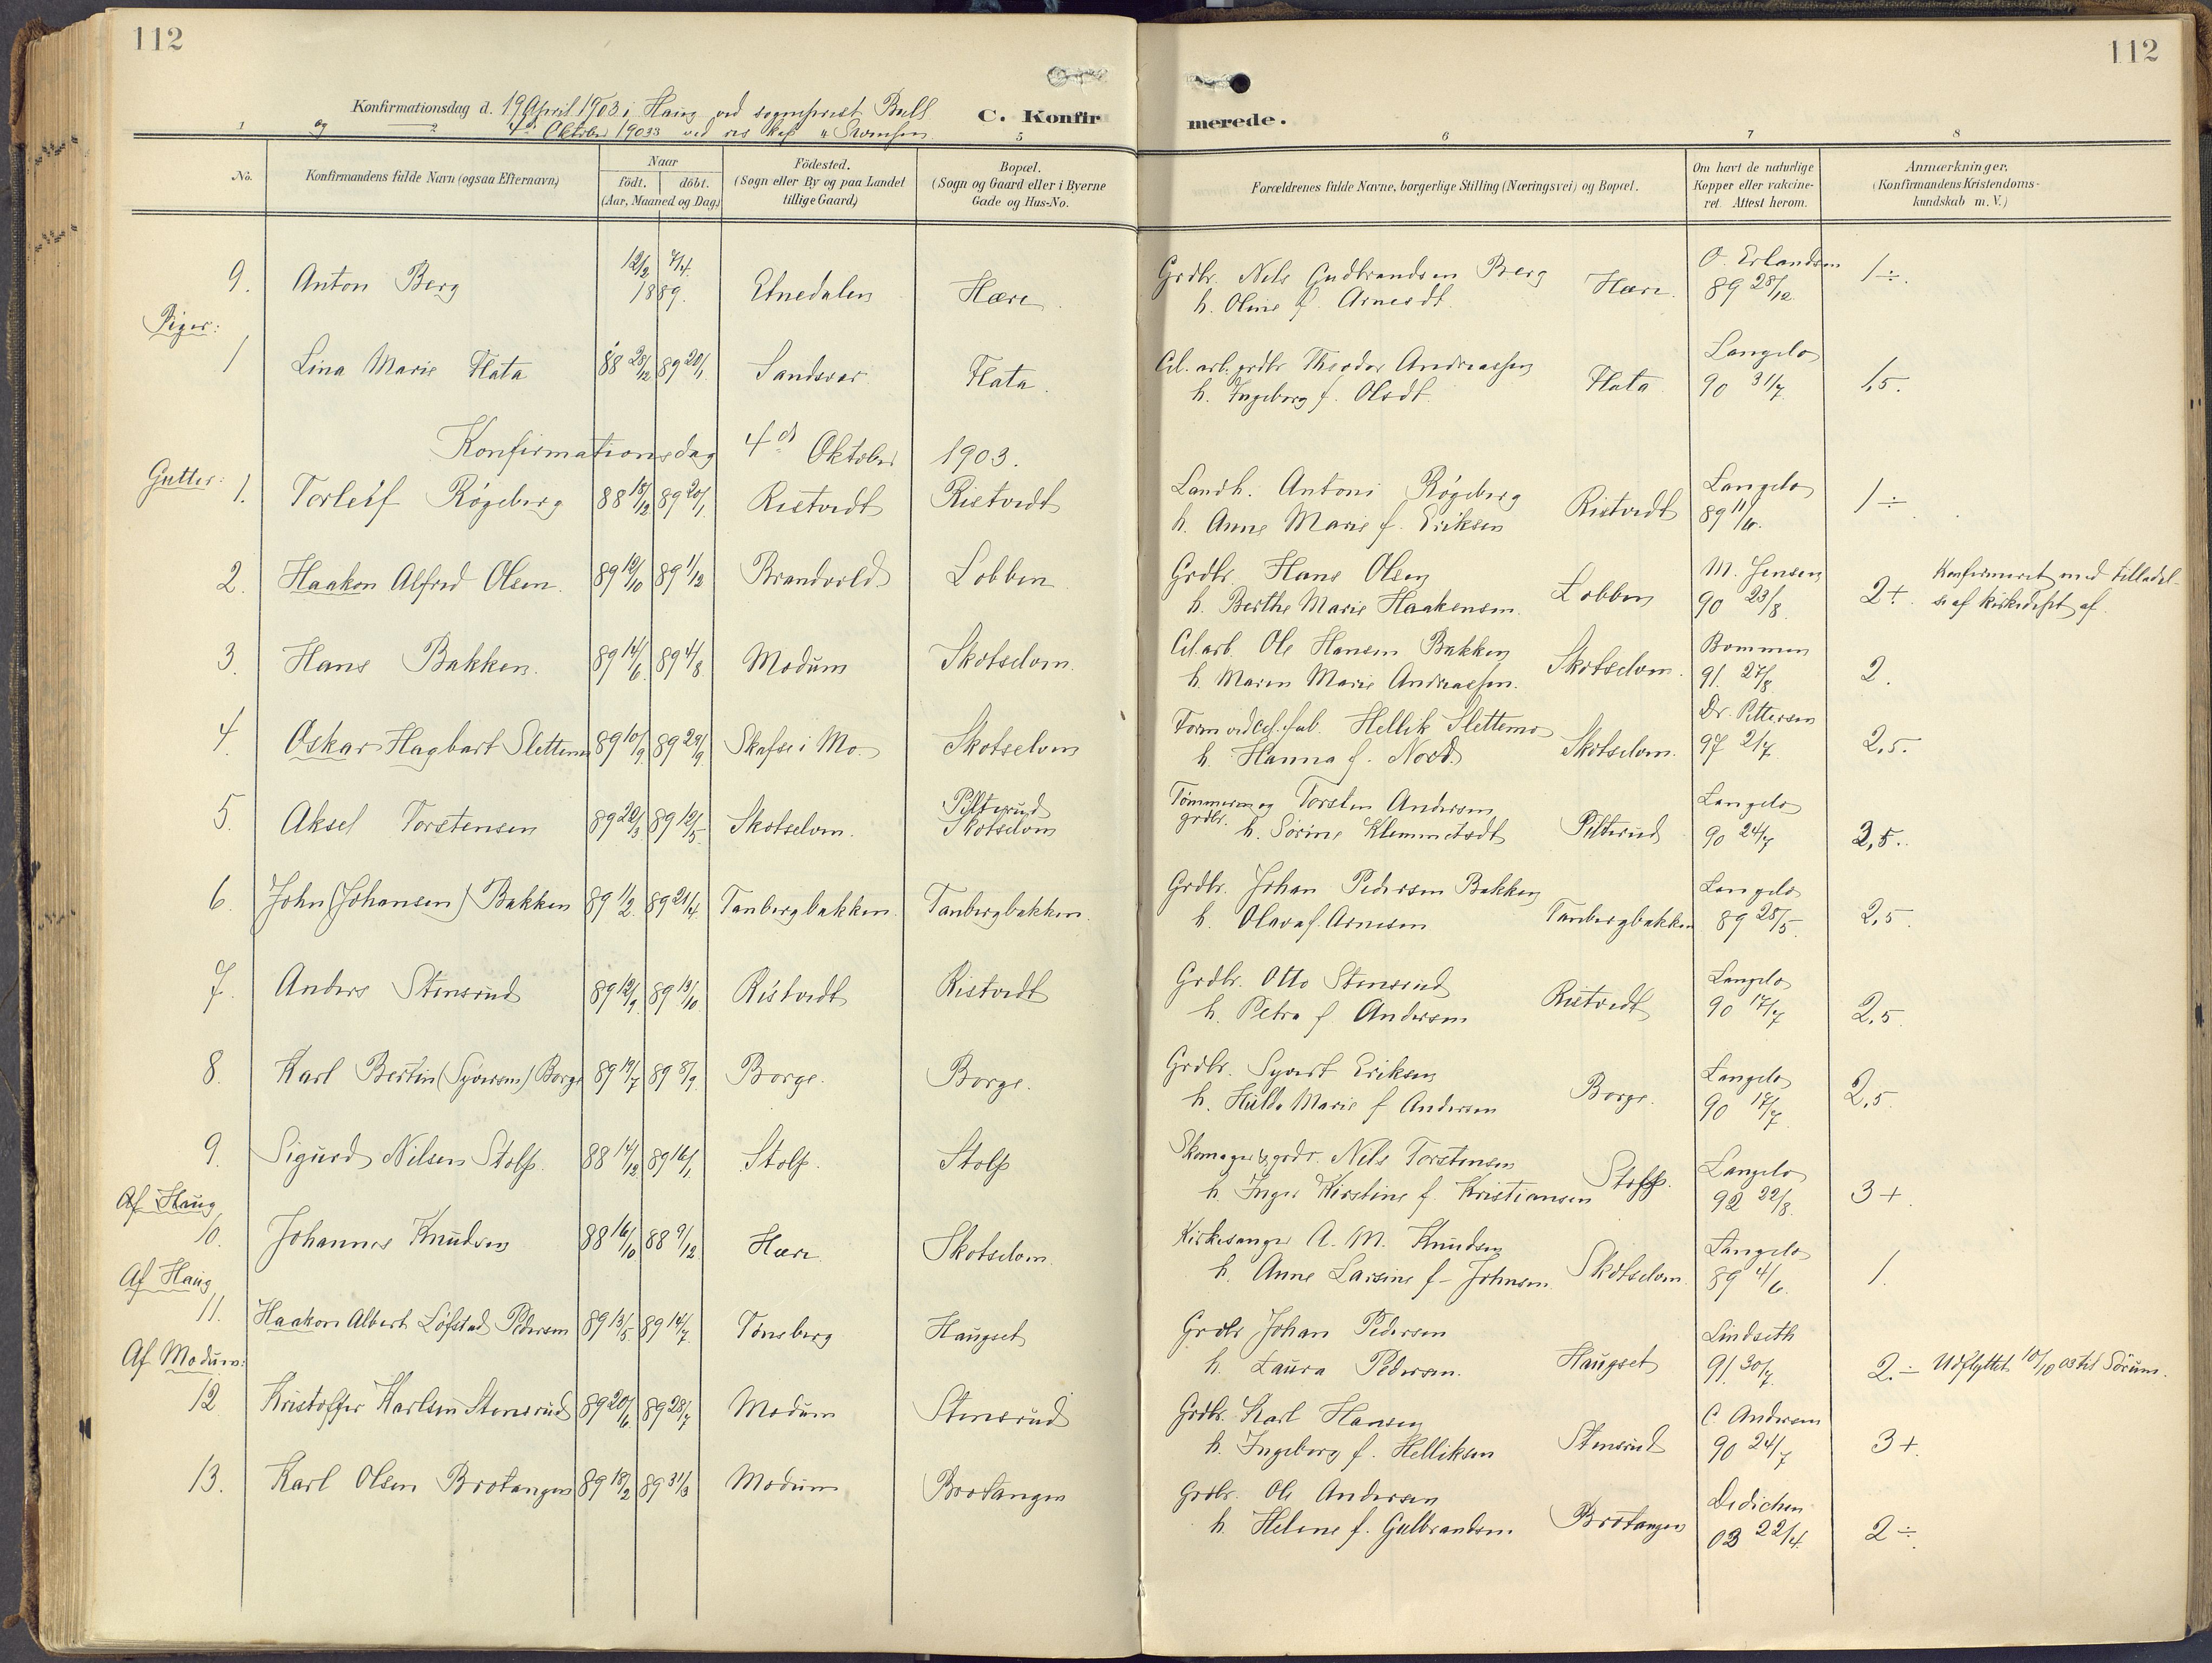 112
112
Konfirmationsdag d. 19 April 1903 i Haug ved sogneprest Bull
C. Konfirmerede.
og 4de Oktober 1903 ved res kap
1 2 5 6 7 8
No.
Konfirmandens fulde Navn (ogsaa Efternavn)
Naar
födt. döbt.
(Aar, Maaned og Dag)
Födested.
(Sogn eller By og paa Landet
tillige Gaard)
Bopæl.
(Sogn og Gaard eller i Byerne
Gade og Hus-No.
Forældrenes fulde Navne, borgerlige Stilling (Næringsvei) og Bopæl.
Om havt de naturlige
Kopper eller vakcine-
ret. Attest herom.
Anmærkninger.
(Konfirmandens Kristendoms-
kundskab m. V.)
9. Anton Berg 12/2 7/4 1889. Etnedalen Hære. Grdbr. Nils Gudbrandsen Berg Hære. O. Erlandsen 1÷.
h. Oline f. Arnesdt. 89 28/12
Piger:
1 Lina Marie Flata 88 28/12 89 20/1 Sandsvær Flata. Cel. arb. grdbr Theodor Andreassen Flata Langelo 1,5.
h. Ingeborg f. Olsdt. 90 31/7
Konfirmationsdag 4de Oktober 1903.
Gutter:
1. Torleif Røgeberg 88 18/12 89 20/1 Ristvedt Ristvedt Landh. Antoni Røgeberg Ristvedt Langelo 1÷
h. Anne Marie f. Eriksen 89 11/6.
2. Haakon Alfred Olsen. 89 12/10 89 1/12 Brandvold Lobben Grdbr. Hans Olsen Lobben M. Jensen 2+. Konfirmeret med tilladel-
h. Berthe Marie Haakensen. 90 23/8 se af kirkedept af.
3. Hans Bakken. 89 14/6 89 4/8 Modum Skotselven. Cel arb. Ole Hansen Bakken Skotselven. Bommen 2.
h. Maren Marie Andreassen. 91. 27/8
4. Oskar Hagbart Slettemo 89 10/9 89 29/9 Skafse i Mo. Skotselven Form. ved cel. fab. Hellik Slettemo Skotselven. Dr. Pettersen 2,5.
h. Hanna f. Nord. 97 21/7
5. Aksel Torstensen 89 22/3 89 12/5 Skotselven. Pilterud Skotselven Tömmerm og Torsten Andersen Pilterud Langelo 2,5.
grdbr. h. Sörine Klemmetsdt 90 24/7
6. John (Johansen) Bakken 89 1/2 89 21/4 Tanbergbakken. Tanbergbakken. Grdbr. Johan Pedersen Bakken Tanbergbakken Langelo 2,5.
h. Olava f. Arnesen 89 28/5.
7. Anders Stensrud 89 12/9 89 13/10 Ristvedt Ristvedt Grdbr. Otto Stensrud Ristvedt Langelo 2,5.
h. Petra f. Andersen 90 17/7
8. Karl Bertin (Syversen) Borge 89 19/7 89 8/9. Borge. Borge. Grdbr. Syvert Eriksen Borge. Langelo 2,5.
h. Hulda Marie f Andersen 90 17/7.
9. Sigurd Nilsen Stolp. 88 14/12 89 16/1 Stolp. Stolp Skomager & grdr. Nils Torstensen Stolp. Langelo 3+.
h. Inger Kirstine f. Kristiansen 92 22/8.
Af Haug
10. Johannes Knudsen 88 16/10 88 9/12 Hære. Skotselven. Kirkesanger A. M. Knudsen Skotselven. Langelo 1.
h. Anne Larsine f. Johnsen. 89 4/6.
Af Haug
11. Haakon Albert Löfstad Pedersen 89 13/5 89 14/7 Tönsberg Haugset Grdbr Johan Pedersen Haugset Lindseth 2.÷ Udflyttet 10/10 03 til Sörum.
h. Laura Pedersen. 91. 30/7.
Af Modum:
12 Kristoffer Karlsen Stensrud 89 20/6 89 28/7 Modum Stensrud Grdbr. Karl Hansen Stensrud C. Andersen 3+.
h. Ingeborg f. Helliksen 90 24/7
13. Karl Olsen Brotangen 89 18/2 89 31/3 Modum Brotangen Grdbr. Ole Andersen Brotangen Dedichen 2÷.
h. Helene f. Gulbrandsen. 03 22/4.